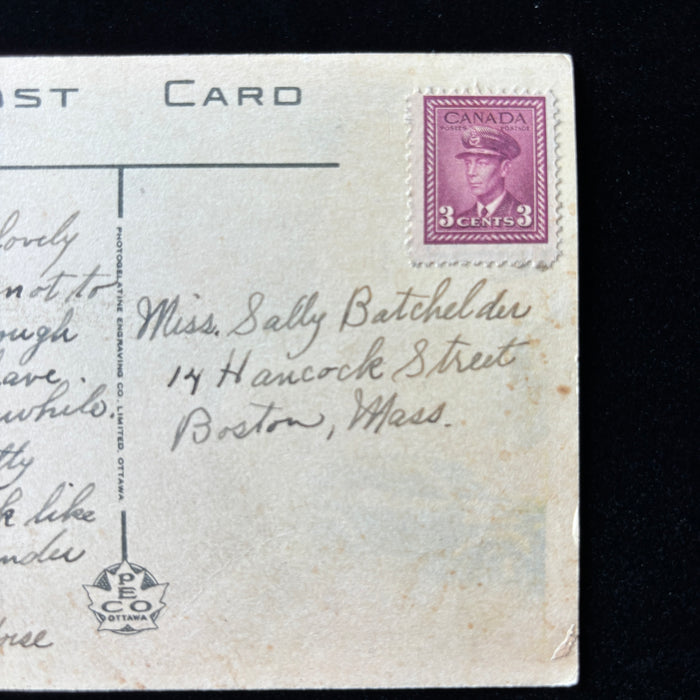 OST CARD
CANADA
POSTES POSTAGE
3 CENTS 3
lovely
not to
ough
ave.
while.
tly
k like
nder
PHOTOGELATINE ENGRAVING CO. LIMITED. OTTAWA
Miss. Sally Batchelder
14 Hancock Street
Boston, Mass.
PECO
OTTAWA